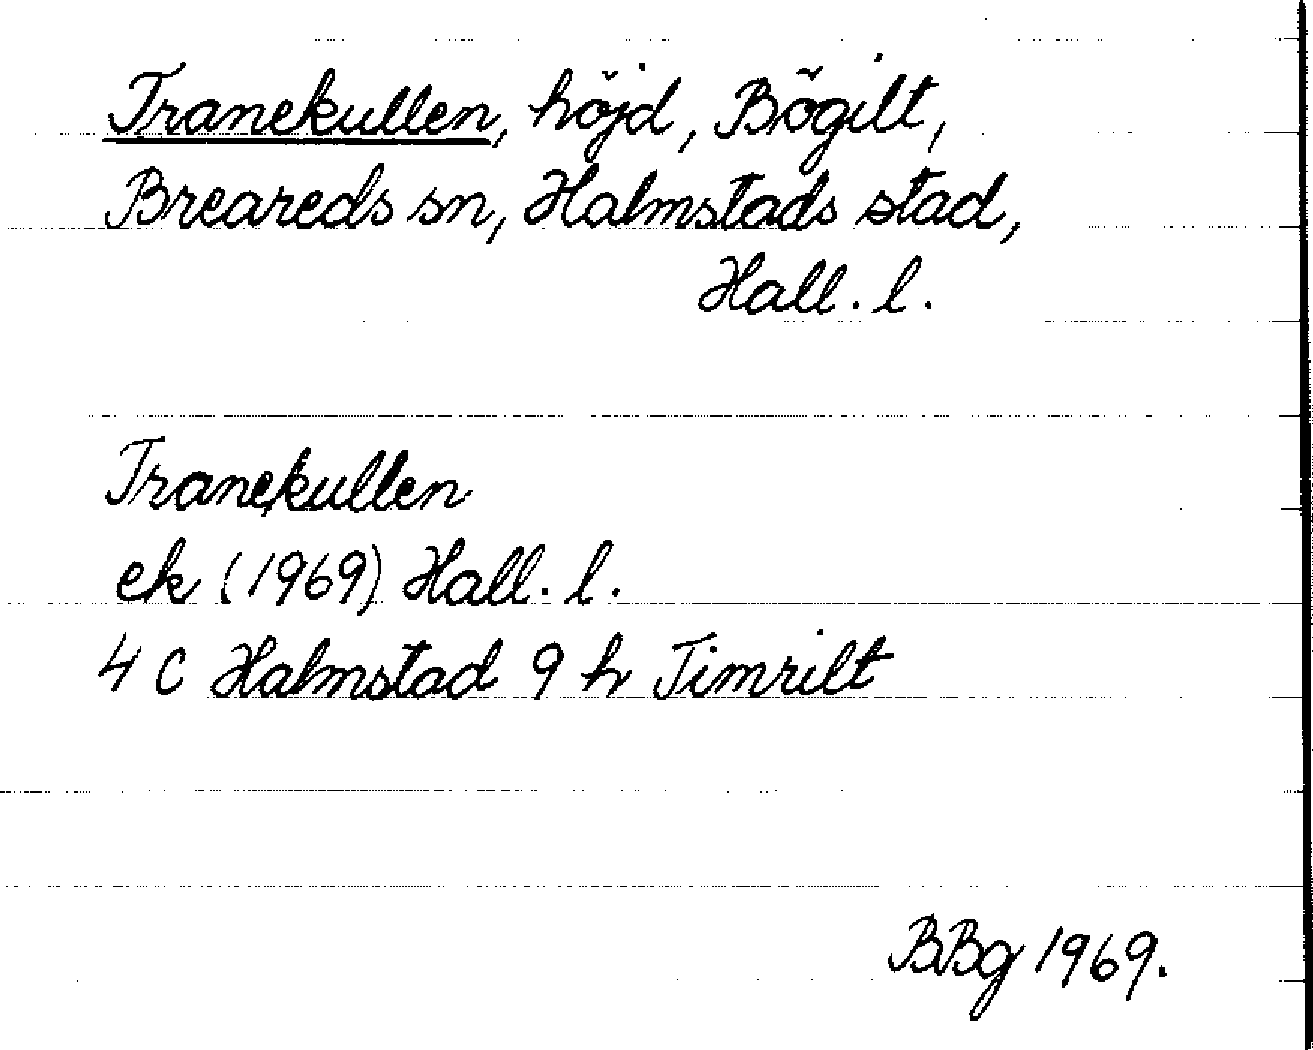 Tranekullen, höjd, Bögilt,
Breareds sn, Halmstads stad,
Hall. l.
Tranekullen
ek (1969) Hall. l.
4 C Halmstad 9 h Timrilt
BBg 1969.